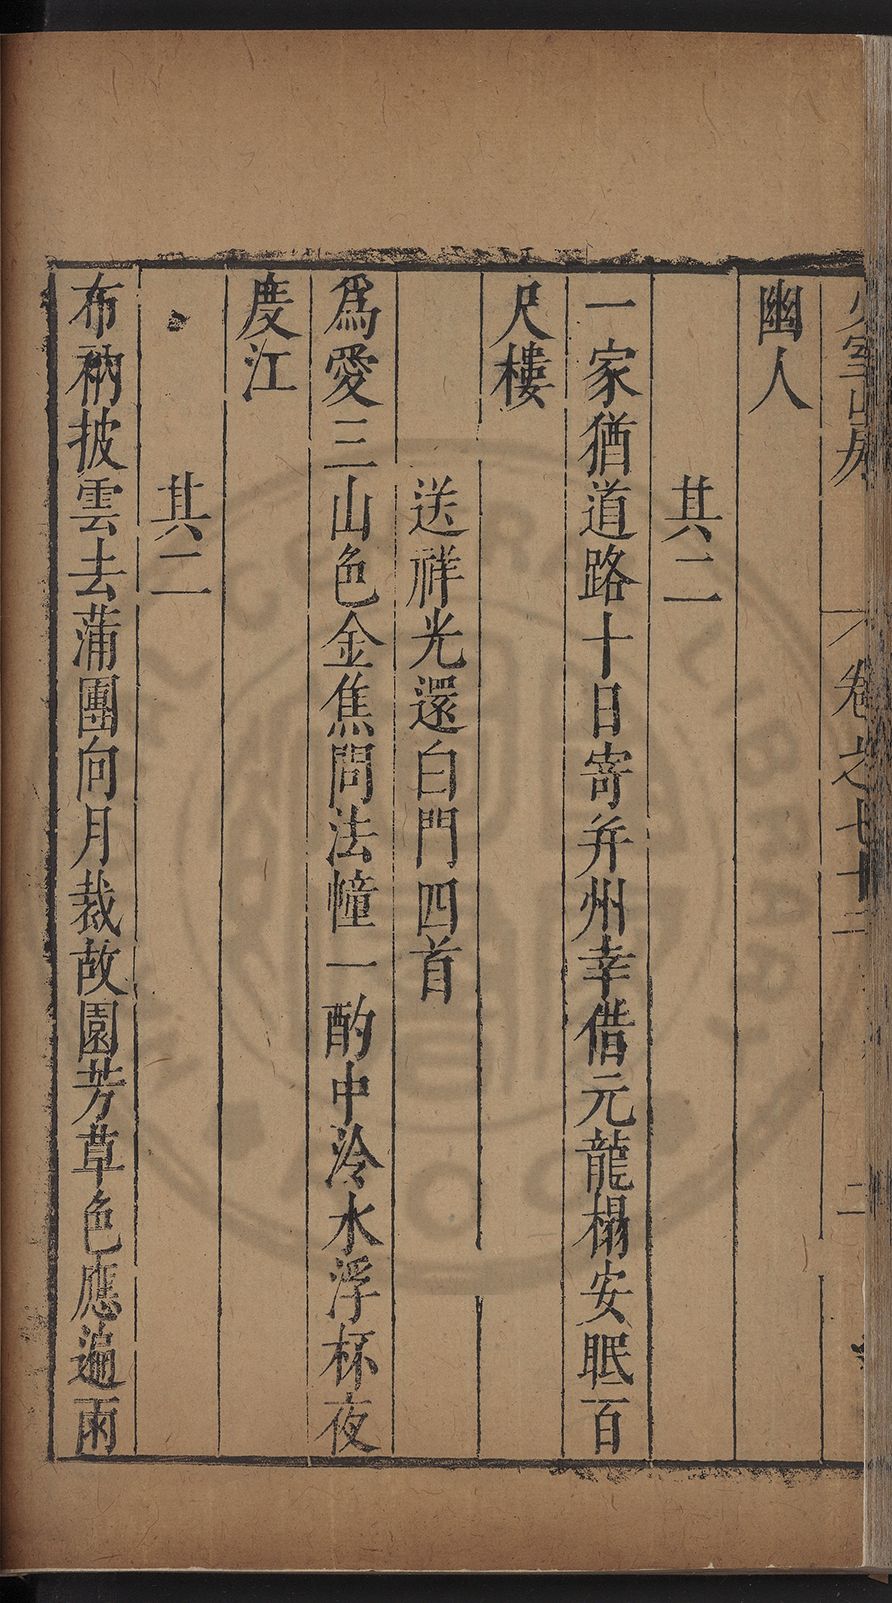 少室山房
卷之七十二
二
幽人
其二
一家猶道路十日寄并州幸借元龍榻安眠百
尺樓
送祥光還白門四首
爲愛三山色金焦問法幢一酌中泠水浮杯夜
度江
其二
布衲披雲去蒲團向月裁故園芳草色應遍雨